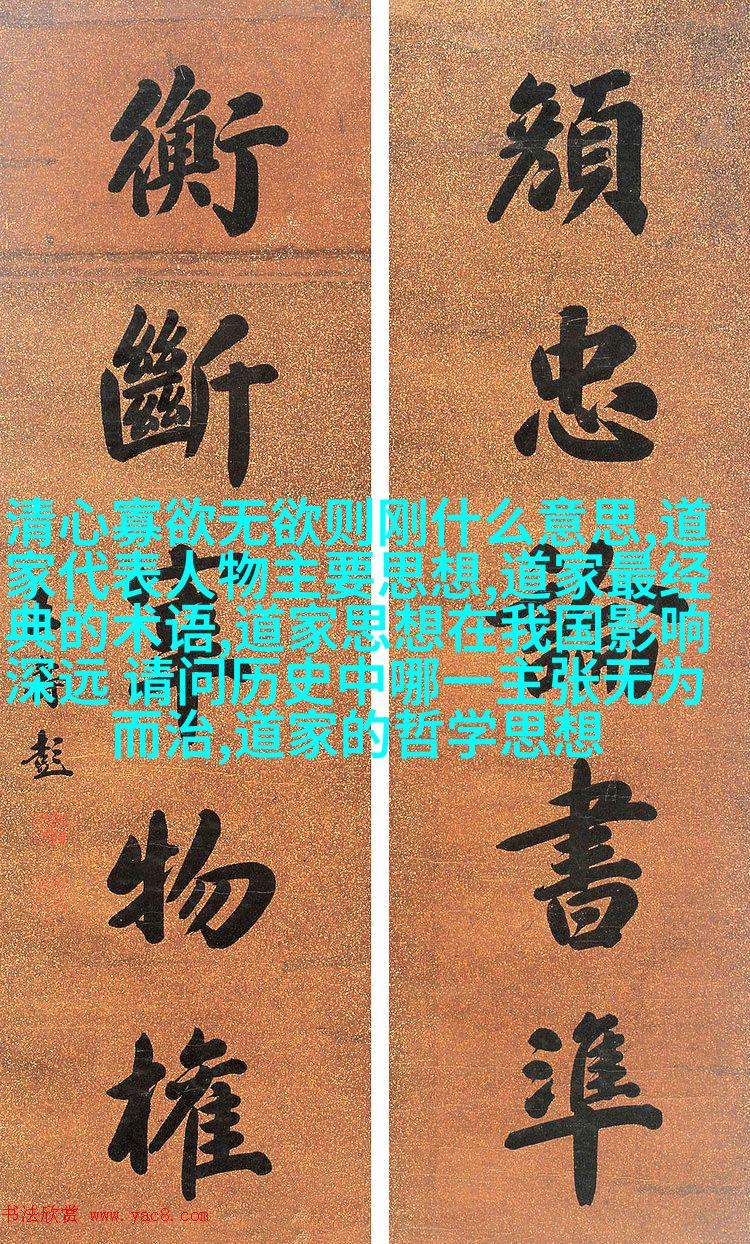 顏
忠
書
準
衡
斷
物
權
彭
清心寡欲无欲则刚什么意思,道
家代表人物主要思想,道家最经
典的术语,道家思想在我国影响
深远 请问历史中哪一主张无为
而治,道家的哲学思想
书法欣赏 www.yac8.com